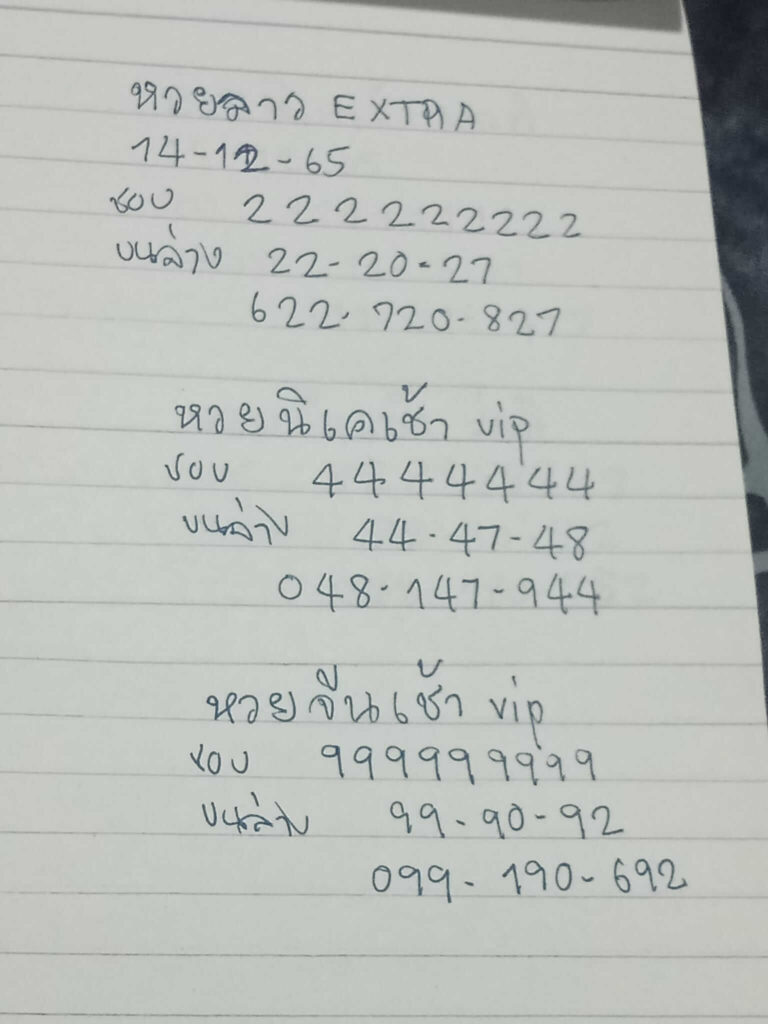 หวยลาว EXTRA
14-12-65
ชอบ 222222222
บนล่าง 22-20-27
622. 720-827
หวยนิเคเช้า vip
ชอบ 4444444
บนล่าง 44.47-48
048-147-944
หวยจีนเช้า vip
ชอบ 999999999
บนล่าง 99-90-92
099-190-692